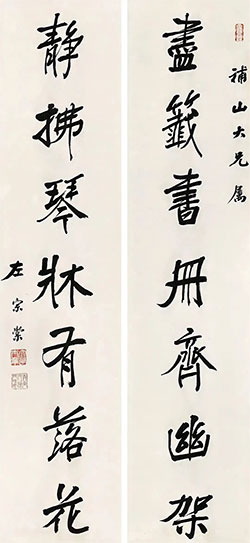 補山大兄属
盡籤書冊齊幽架
靜拂琴牀有落花
左宗棠